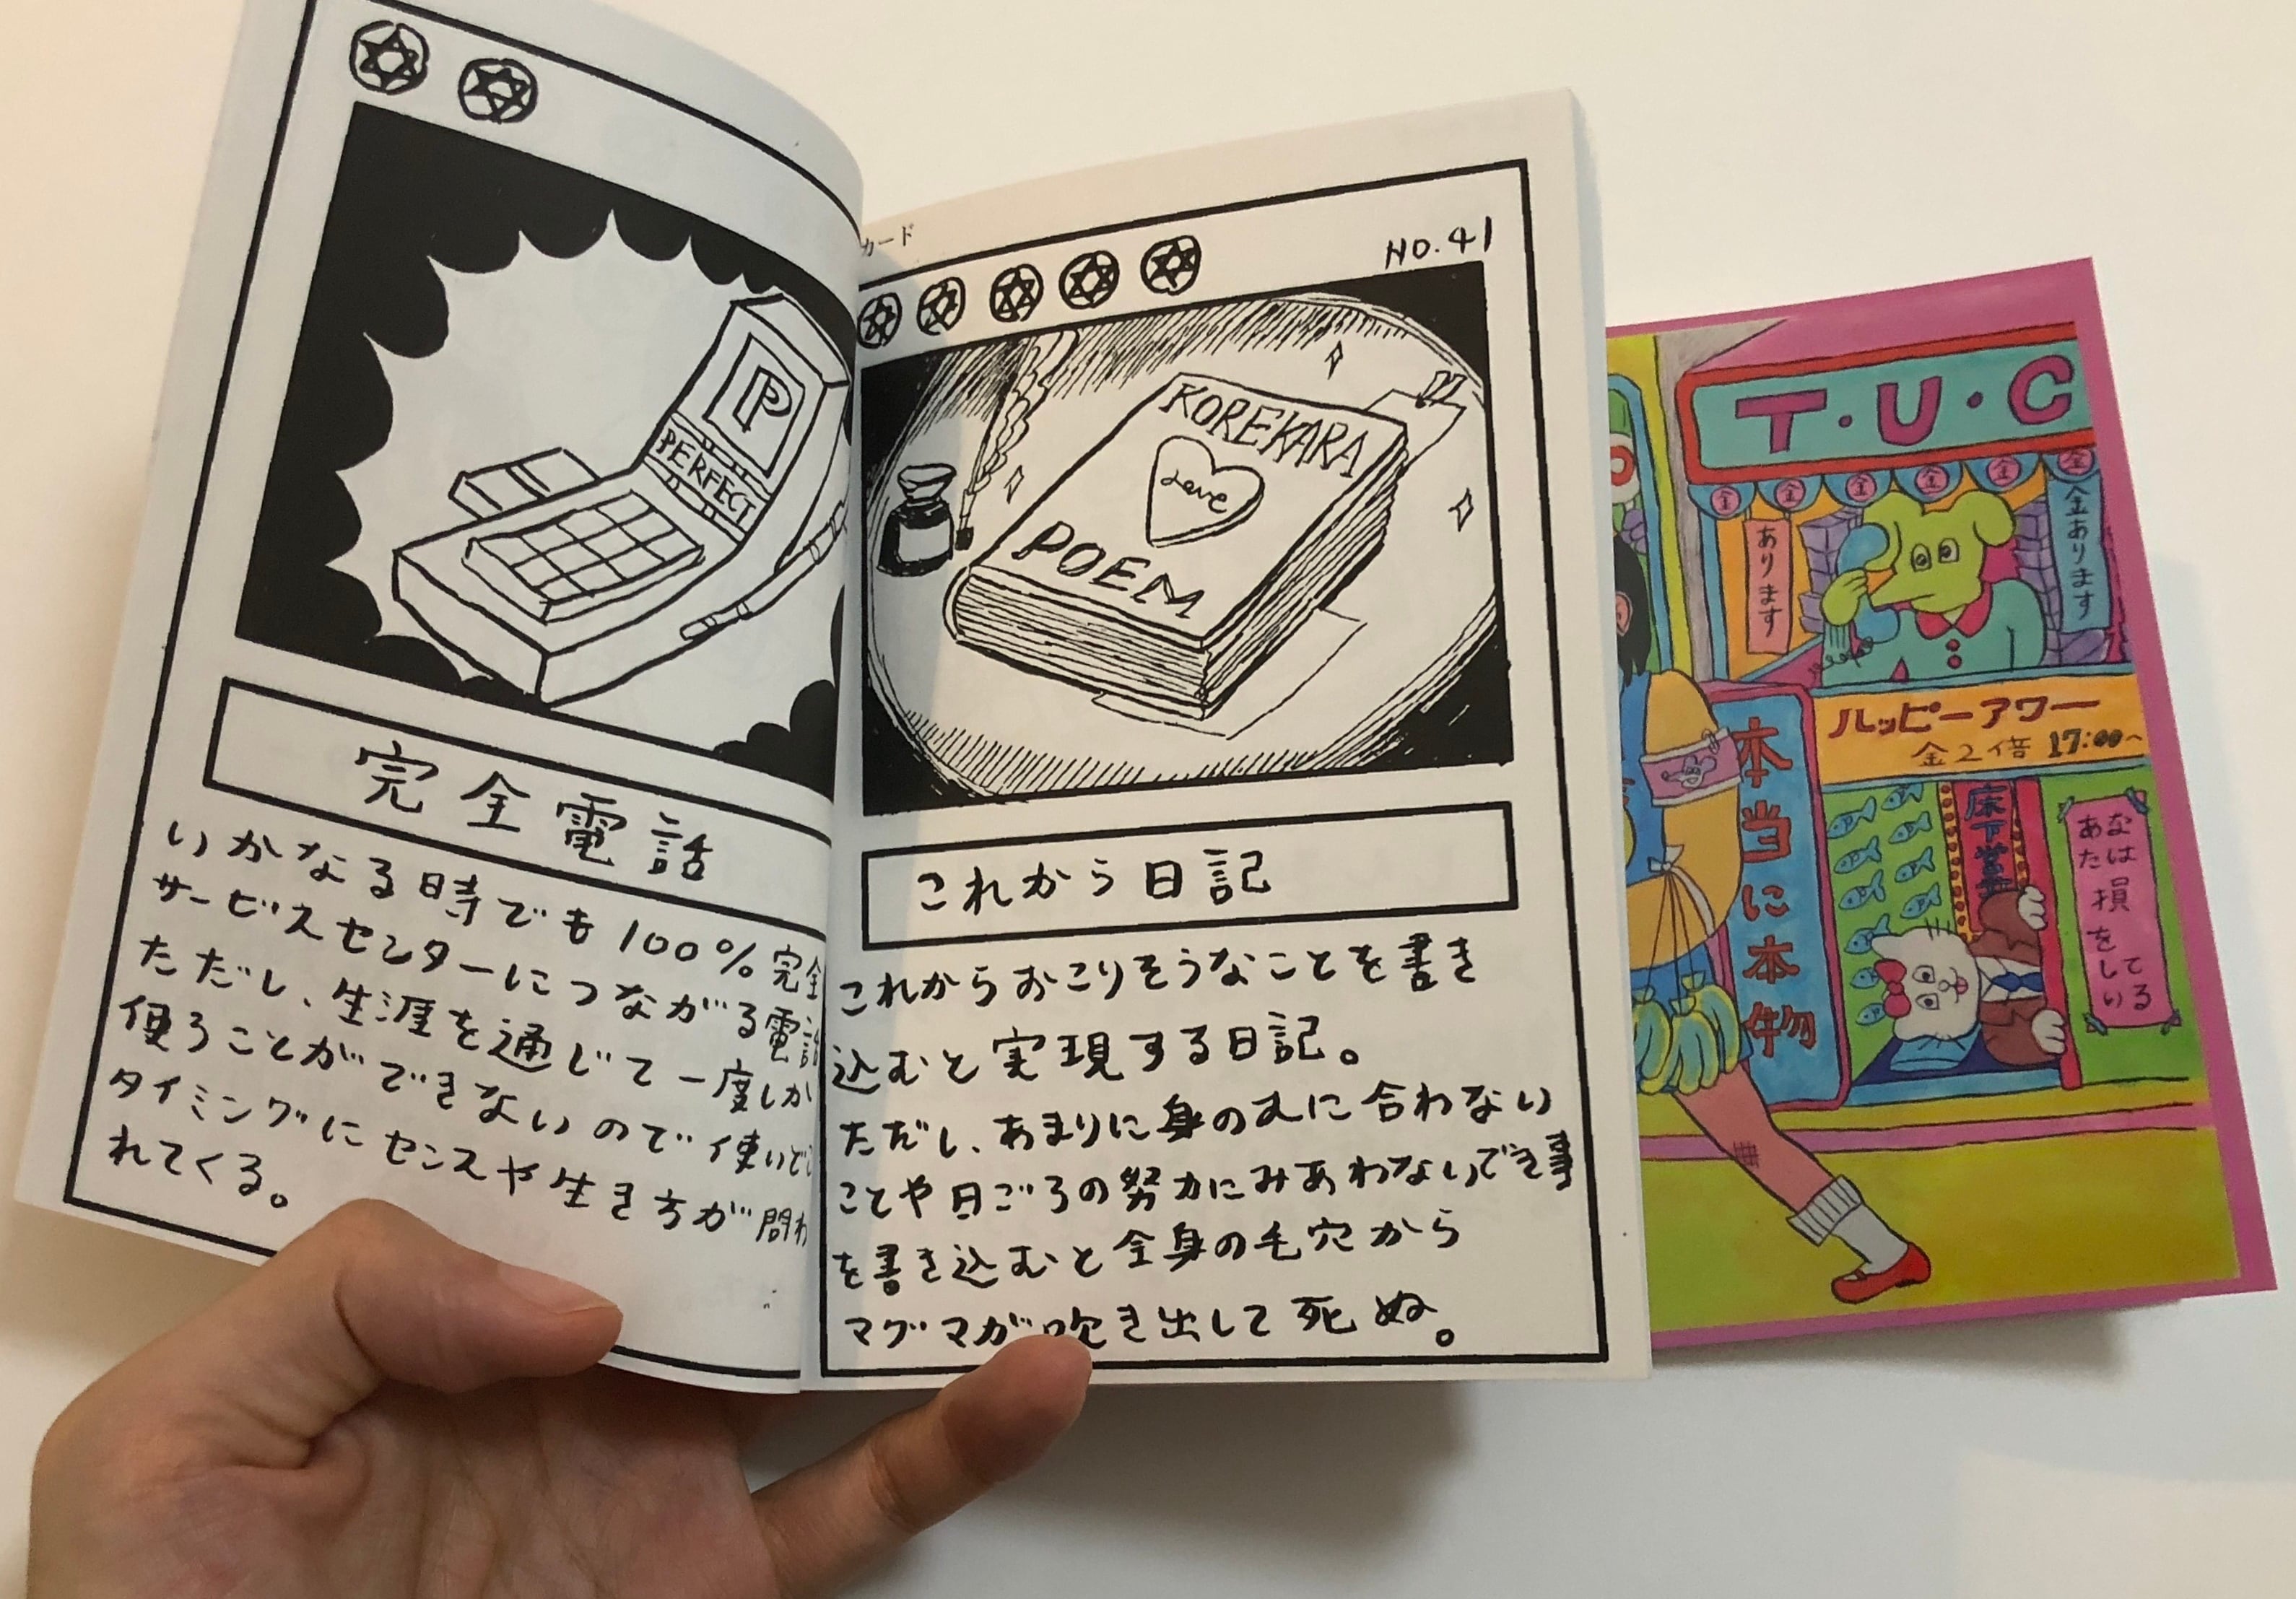 P
PERFECT
完全電話
いかなる時でも100%完全
サービスセンターにつながる電話
ただし、生涯を通じて一度しか
使うことができないので使いど
タイミングにセンスや生き方が問わ
れてくる。
カード
NO.41
KOREKARA
Love
POEM
これから日記
これからおこりそうなことを書き
込むと実現する日記。
ただし、あまりに身の丈に合わない
ことや日ごろの努力にみあわないでき事
を書き込むと全身の毛穴から
マグマが吹き出して死ぬ。
T・U・C
金 金 金 金 金
あります
金あります
ハッピーアワー
金2倍 17:00~
本当に本物
床下営業
あなたは
損を
している